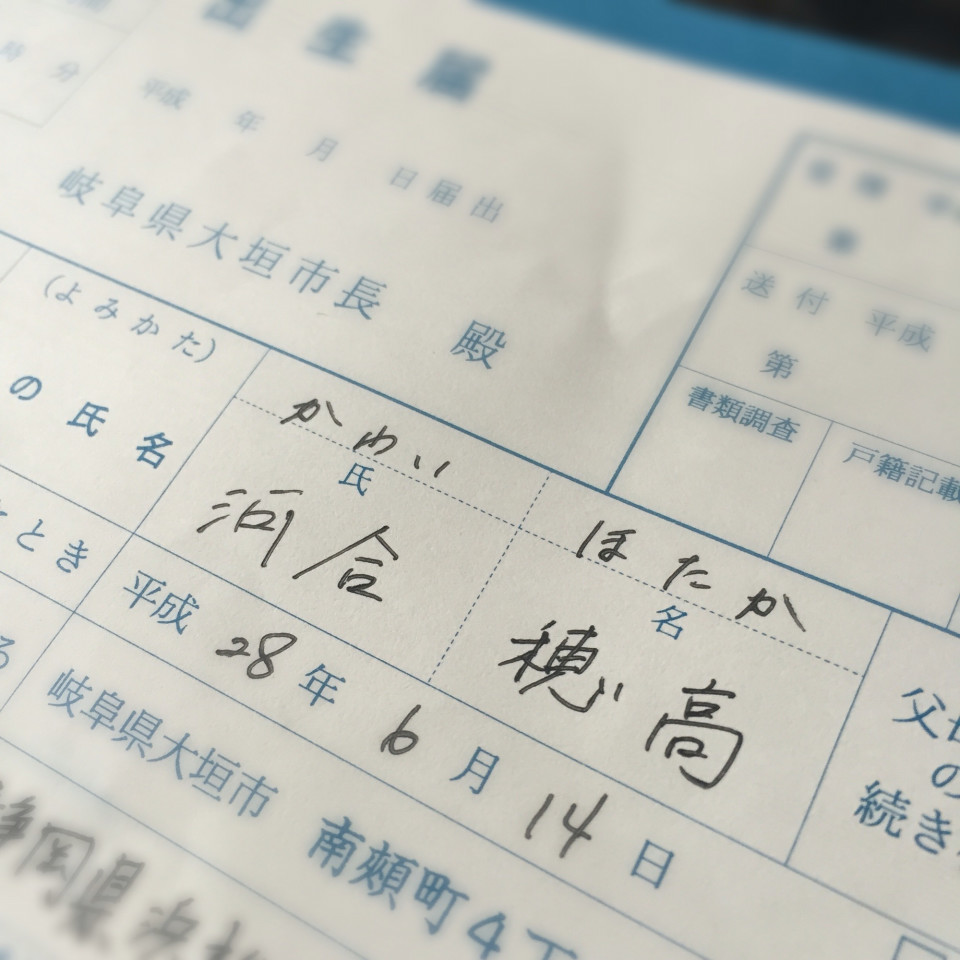 出生届
時 分
平成 年 月 日 届出
岐阜県大垣市長 殿
送付 平成
第
書類調査
戸籍記載
(よみかた)
の氏名
かわい
ほたか
氏
名
河合
穂高
父母
の
続き
とき
平成 28 年 6 月 14 日
岐阜県大垣市 南頬町4丁
静岡県浜松